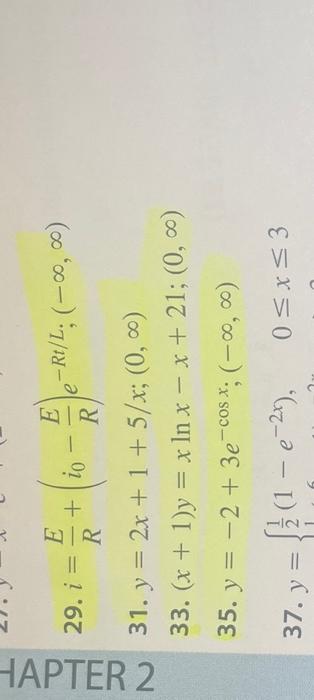 29. i = E/R + (i₀ − E/R)e^(−Rt/L); (−∞, ∞)
31. y = 2x + 1 + 5/x; (0, ∞)
33. (x + 1)y = x ln x − x + 21; (0, ∞)
35. y = −2 + 3e^(−cos x); (−∞, ∞)
37. y = { ½(1 − e^(−2x)), 0 ≤ x ≤ 3
HAPTER 2